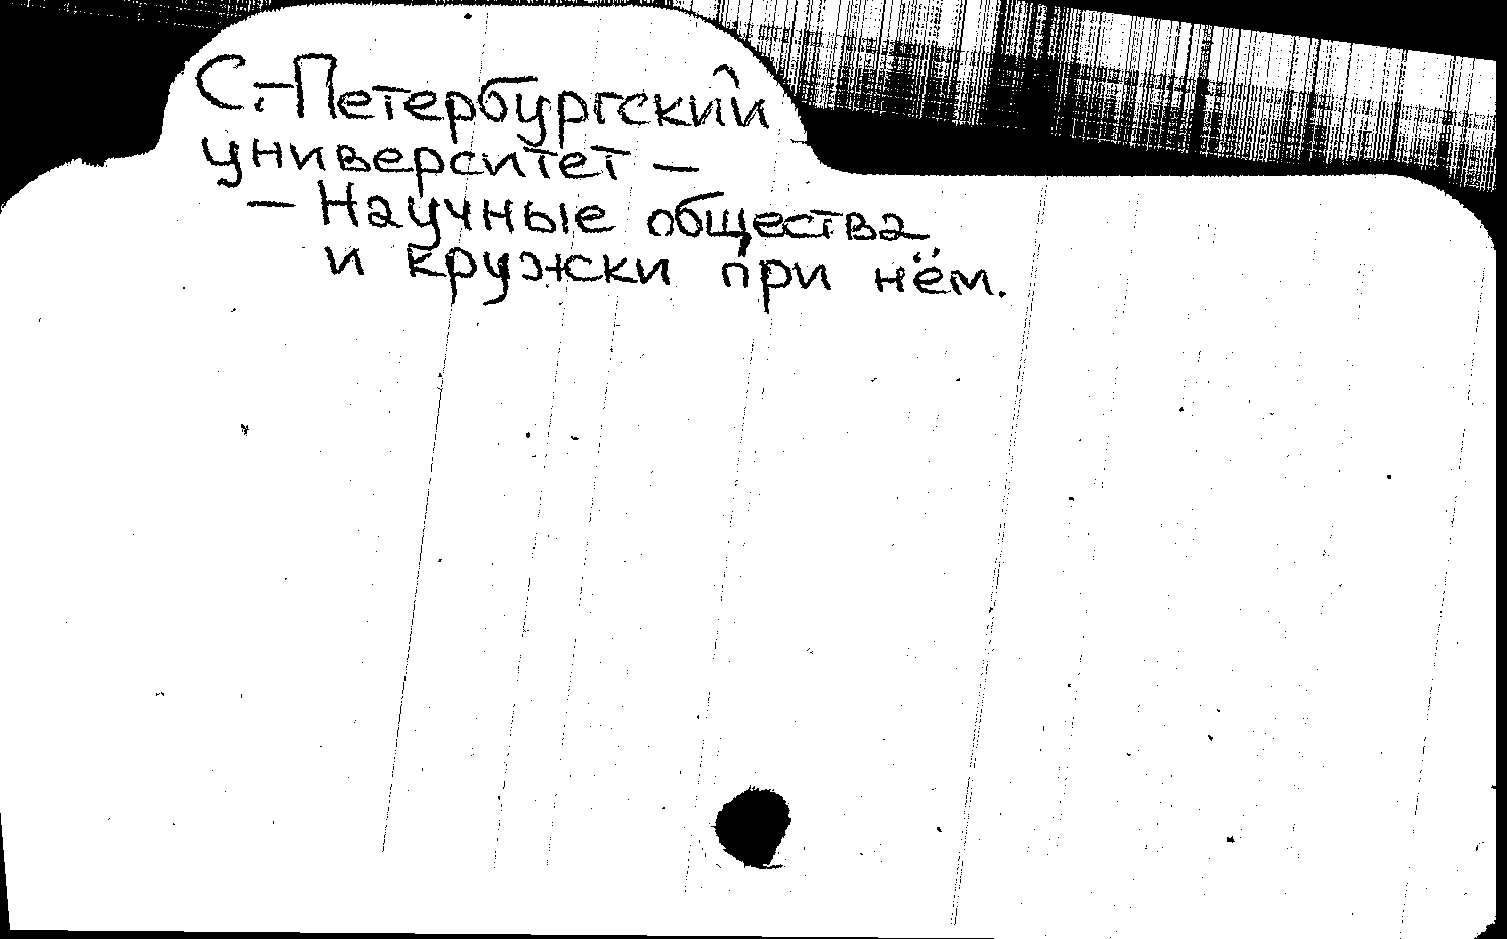 С.-Петербургский
университет —
— Научные общества
и кружски при нём.